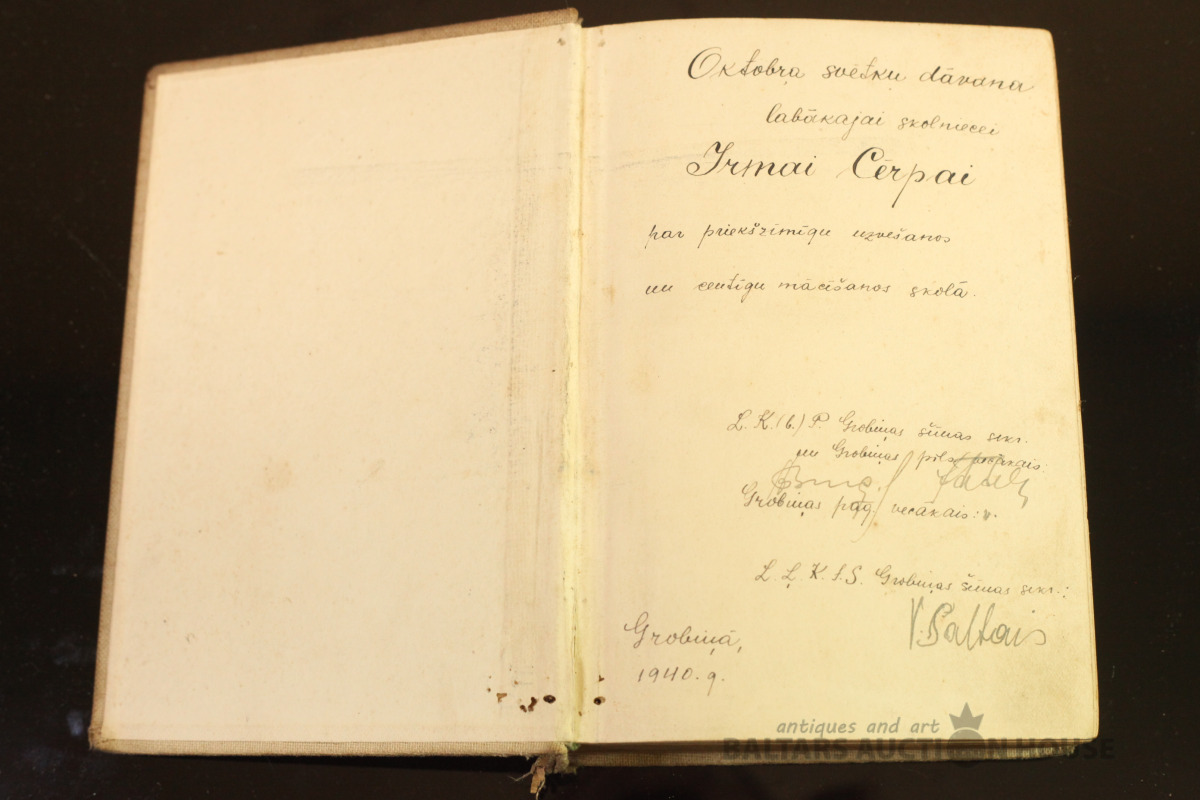 Oktobŗa svētku dāvana
labākajai skolniecei
Irmai Cērpai
par priekšzīmīgu uzvešanos
un centīgu mācīšanos skolā.
L. K. (b.) P. Grobiņas šūnas sekr.
un Grobiņas pils.
Grobiņas pag. vecākais:
L. Ļ. K. J. S. Grobiņas šūnas sekr.:
V. Baltais
Grobiņā,
1940. g.
antiques and art
BALTARS AUCTION HOUSE